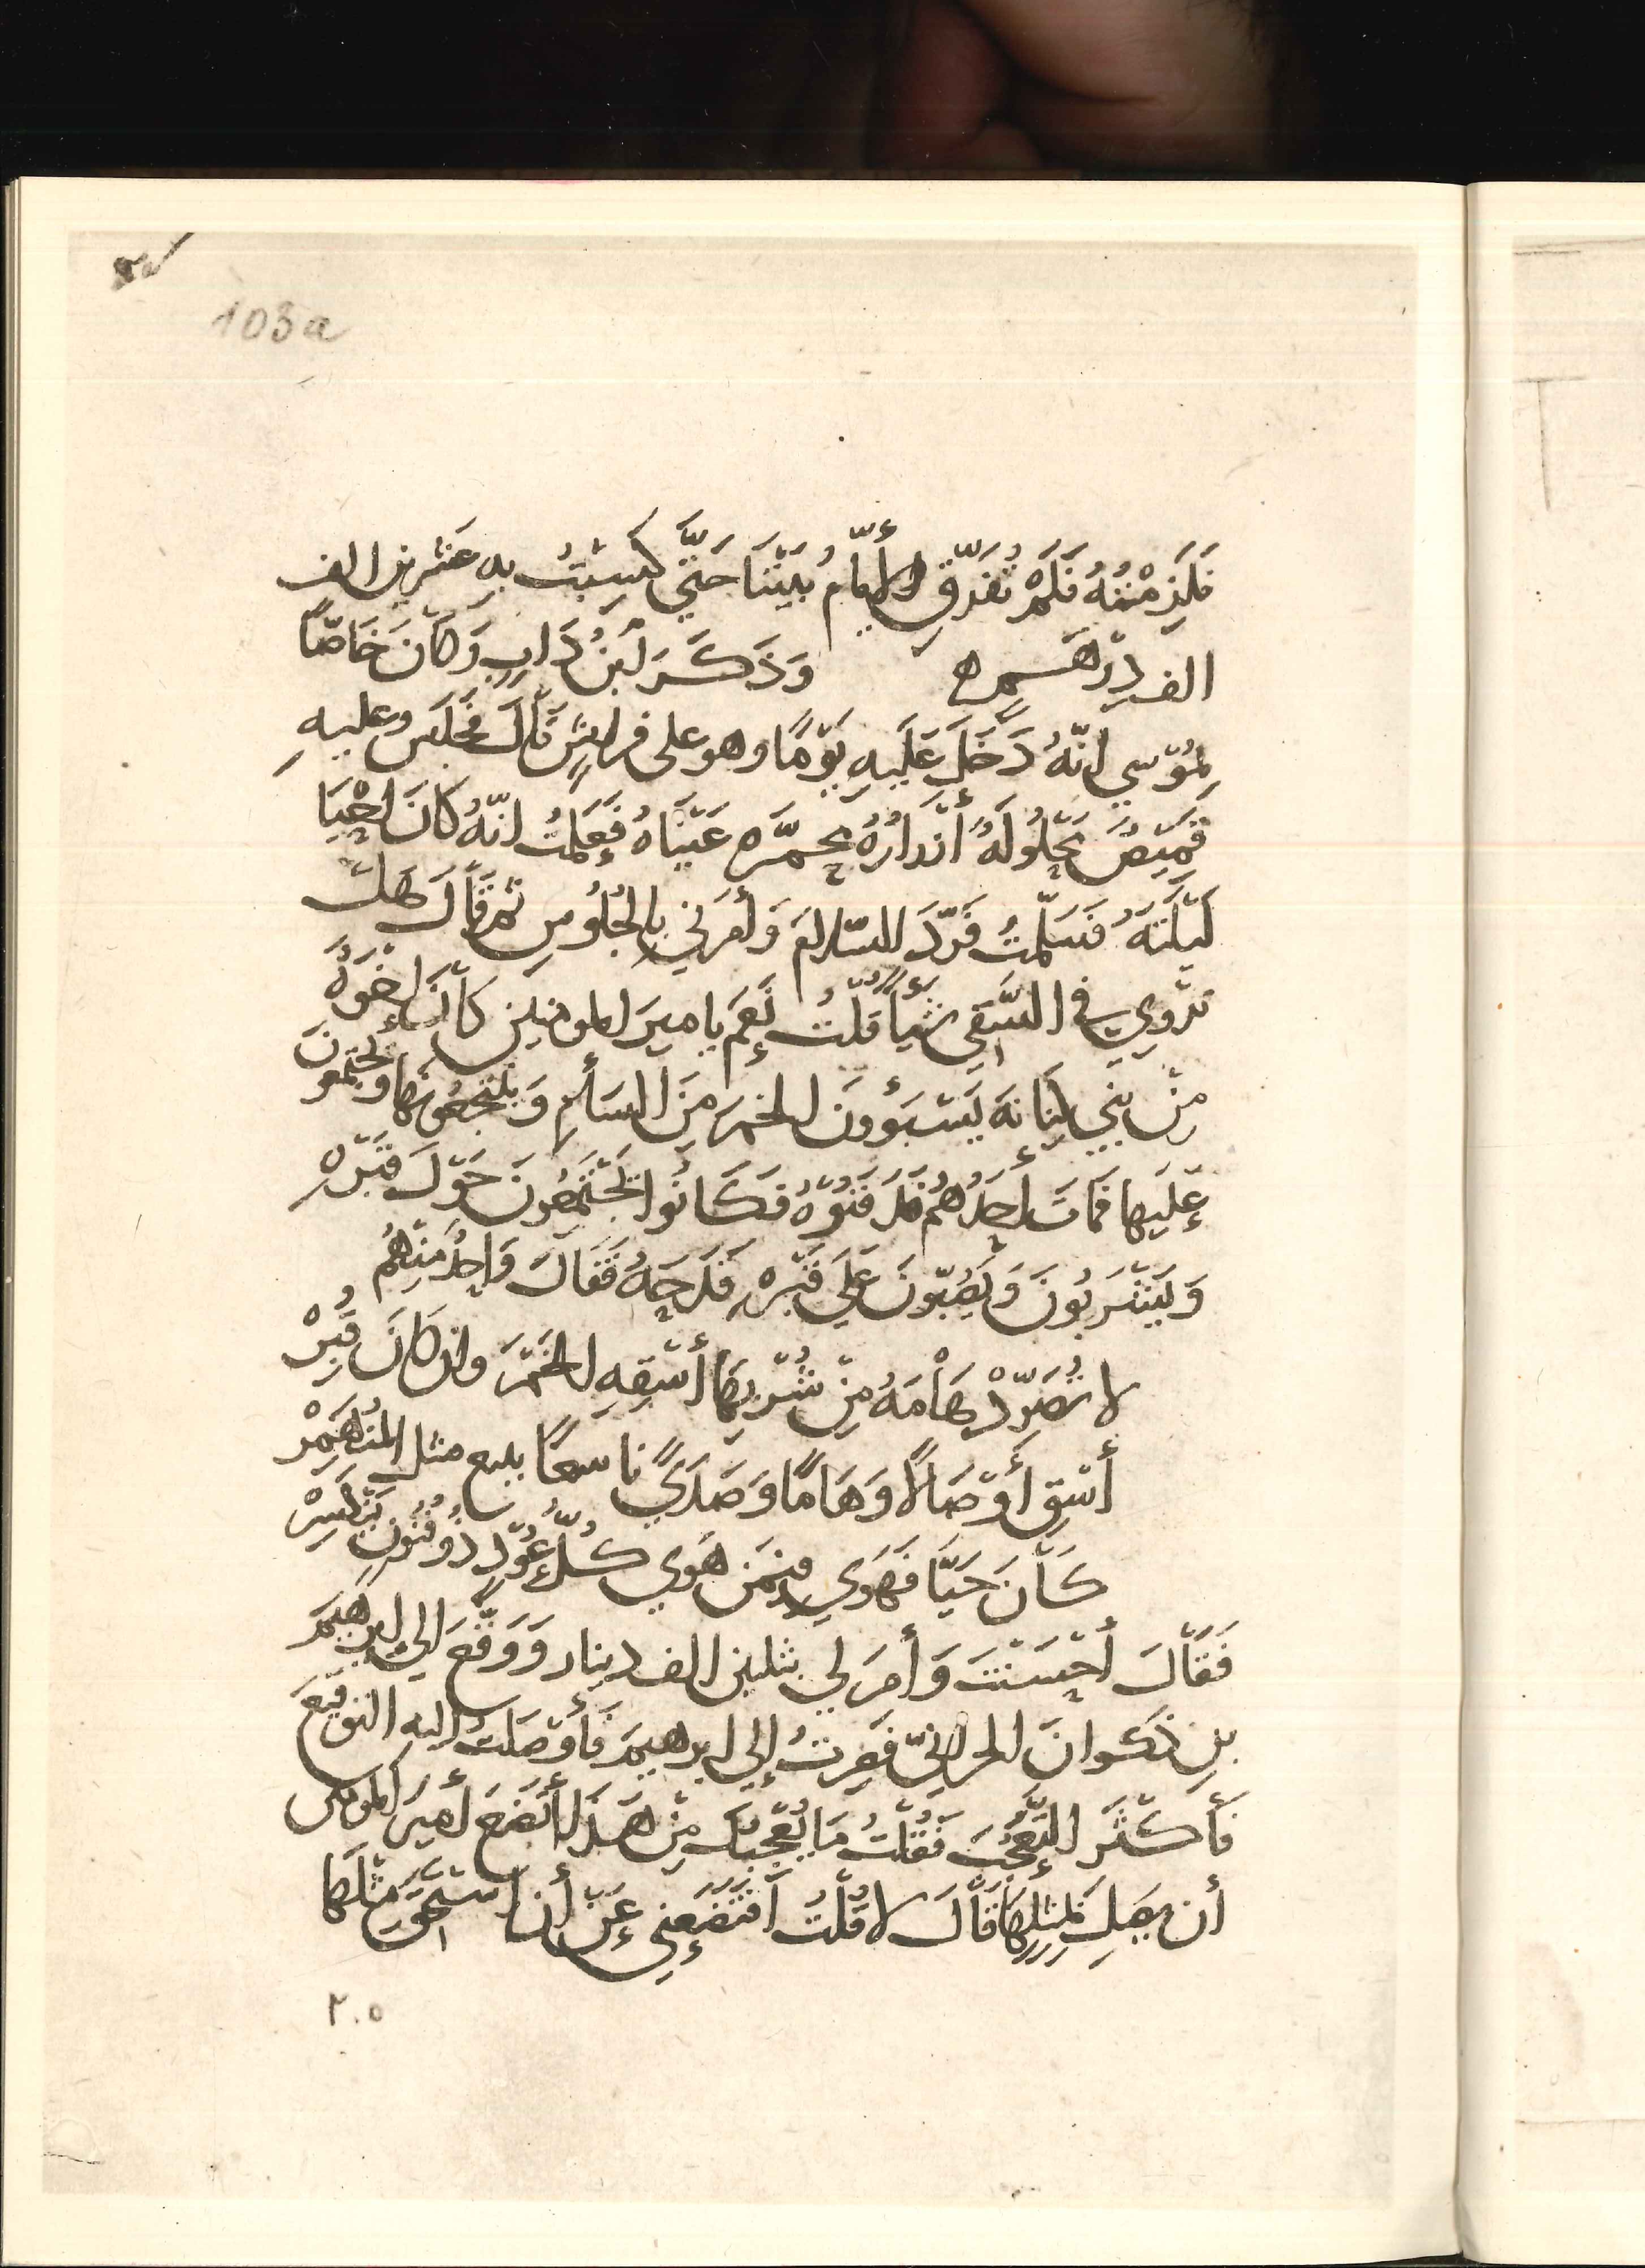 103a
فَلَزِمْتُهُ فَلَمْ تُفَرِّقِ الأَيّامُ بَيْنَنَا حَتَّي كَسِبْتُ بِهِ عشرين الف
الف دِرْهَمٍ ه وَذَكَرَ ابْنُ دَابٍ وَكَانَ خَاصّاً
لِمُوْسي انّهُ دَخَلَ عَلَيهِ يَوْمًا وهو على فراشٍ قَالَ فجلس وعليهِ
قَمِيْصٌ مَحْلُولَهٌ أَزْرَارُهُ محمرّه عَيْنَاهُ فَعَلِمْتُ انّهُ كَانَ احْيَا
لَيْلَتَهُ فَسَلّمتُ فَرَدَّ السّلامَ وَأَمَرَني بالجُلُوسِ ثم قَالَ هَلْ
تَرْوِي في السَّقي شَيْأً قُلْتُ نَعَم يا ميرَ المومنين كَانَ إخْوَةٌ
مِنْ بَنِي كِنَانَهَ يَسْتَبَؤُونَ الخمرَ مِنَ السَأمِ وَينتجعُونها ويجتمعُونَ
عَلَيها فَمَاتَ أحَدُهُم فَدَفَنُوْهُ فَكَانُوا يَجْتَمِعُونَ حَوْلَ قَبْرِهِ
وَيَشْرَبُونَ وَيَصُبّونَ عَلَي قَبْرِهِ قَدَحَهُ فَقَالَ وَاحِدٌ مِنْهُم
لا تُصَرِّدْ هَامَهً مِنْ شُرْبِهَا أَسْقِهِ الخَمْرَ وان كَانَ قُبِرْ
أَسْقِ أَوْصَالاً وَهَامًا وَصَدَيً ناسعًا يلمع مثل المُنْهَمِرْ
كَانَ حَيَّاً فَهَوَي فيمَن هَوَي كُلُّ عُوْدٍ ذُو فُنُونٍ يَنْكَسِرْ
فَقَالَ أَحْسَنْتَ وَأَمَرَ لي بثلثين الف دينار وَوَقَّعَ الي ابرهيمَ
بنِ ذكوانَ الحرانيّ فَصِرتُ إلي ابرهيمَ فَأَوْصَلتُ اليه التوقيعَ
فَأَكْثَرَ التَّعَجُّبَ فَقُلْتُ مَا يُعْجِبُكَ مِنْ هَذَا أَتَضَعُ أميرَ المومنين
أن يَصِلَ بمِثْلِهَا قَالَ لا قُلْتُ افَتَضَعُني عَنْ أن استحِقَّ مِثْلَهَا
٢٠٥